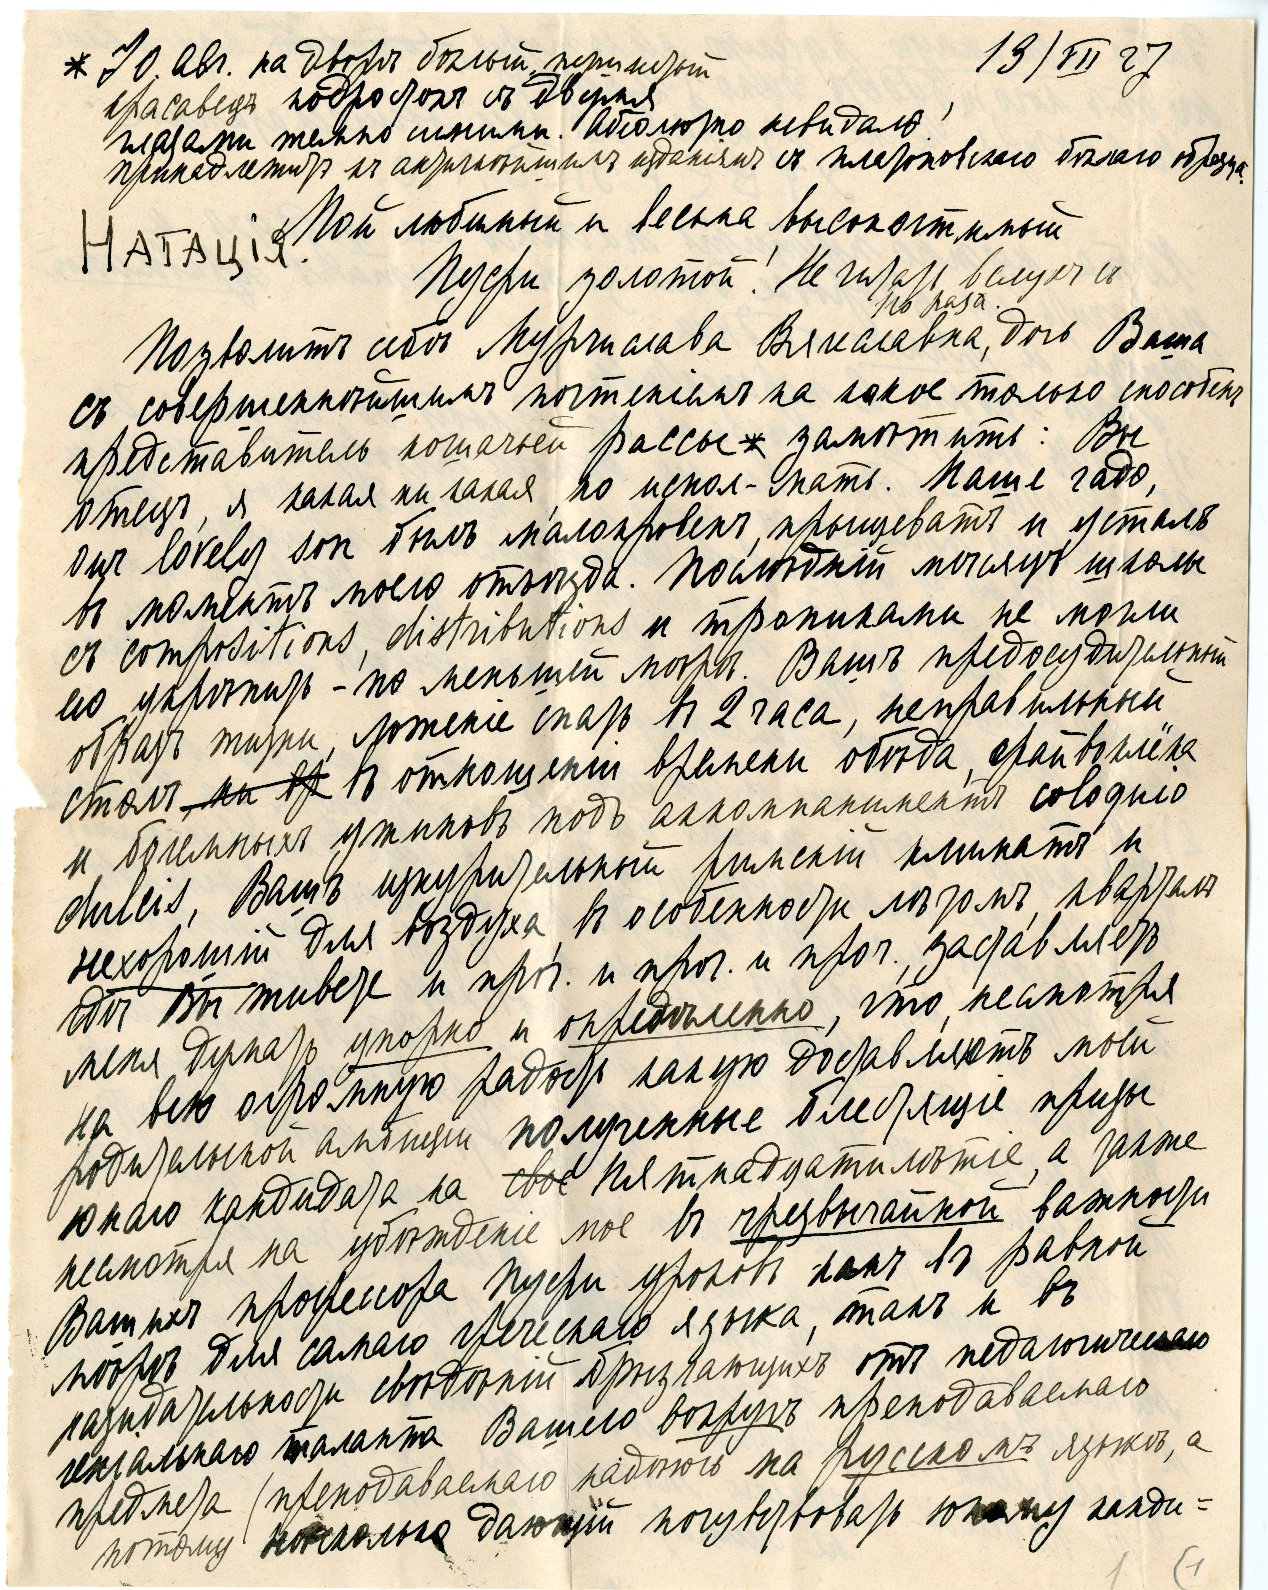 * Ю. Авг. на дворѣ бѣлый, пушистый
красавецъ подростокъ съ двумя
глазами темно синими. Абсолютно невидаль!
принадлежитъ къ античнѣйшимъ изданіямъ съ платоновскаго бѣлаго образца.
19/VII 27
НАТАЦІЯ.
Мой любимый и весьма высокочтимый
Пусри золотой! Не читать вслухъ и
по
Позвольте себѣ Мурчислава Вячеславна, дочь Ваша
съ совершеннѣйшимъ почтеніемъ на какое только способенъ
представитель кошачьей рассы * замѣтить: Вы
отецъ, я какая ни какая, но испол-мать. Наше чадо,
our lovely son былъ малокровенъ, прыщеватъ и усталъ
въ моментъ моего отъѣзда. Послѣдній мѣсяцъ школы
съ compositions, distributions и тропиками не могли
его укрѣпить - по меньшей мѣрѣ. Вашъ предосудительный
образъ жизни, ложеніе спать въ 2 часа, неправильный
столъ въ отношеніи времени обѣда, файвоклёка
и богемныхъ ужиновъ подъ аккомпаниментъ coloquio
dulcis, Вашъ изнурительный римскій климатъ и
нехорошій для воздуха, въ особенности лѣтомъ, кварталъ
гдѣ Вы живете и проч. и проч. и проч., заставляетъ
меня думать упорно и опредѣленно, что, несмотря
на всю огромную радость какую доставляютъ моей
родительской амбиціи полученные блестящіе призы
юнаго кандидата на свое пятнадцатилѣтіе, а также
несмотря на убѣжденіе мое въ чрезвычайной важности
Вашихъ профессора Пусри уроковъ какъ въ равной
мѣрѣ для самаго греческаго языка, такъ и въ
назидательности свѣдѣній брызгающихъ отъ педагогическаго
геніальнаго таланта Вашего вокругъ преподаваемаго
предмета (преподаваемаго надѣюсь на русскомъ языкѣ, а
потому нѣсколько дающій почувствовать юному канди=